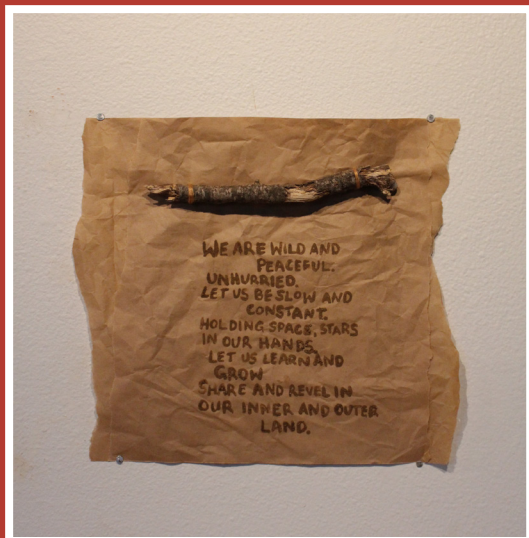 WE ARE WILD AND
PEACEFUL.
UNHURRIED.
LET US BE SLOW AND
CONSTANT.
HOLDING SPACE, STARS
IN OUR HANDS.
LET US LEARN AND
GROW
SHARE AND REVEL IN
OUR INNER AND OUTER
LAND.